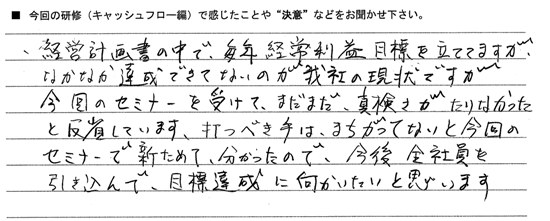 ■ 今回の研修（キャッシュフロー編）で感じたことや“決意”などをお聞かせ下さい。
・経営計画書の中で、毎年経常利益目標を立ててますが、
なかなか達成できてないのが我社の現状ですが
今回のセミナーを受けて、まだまだ、真検さがたりなかった
と反省しています、打つべき手は、まちがってないと今回の
セミナーで新ためて、分かったので、今後全社員を
引き込んで、目標達成に向かいたいと思います